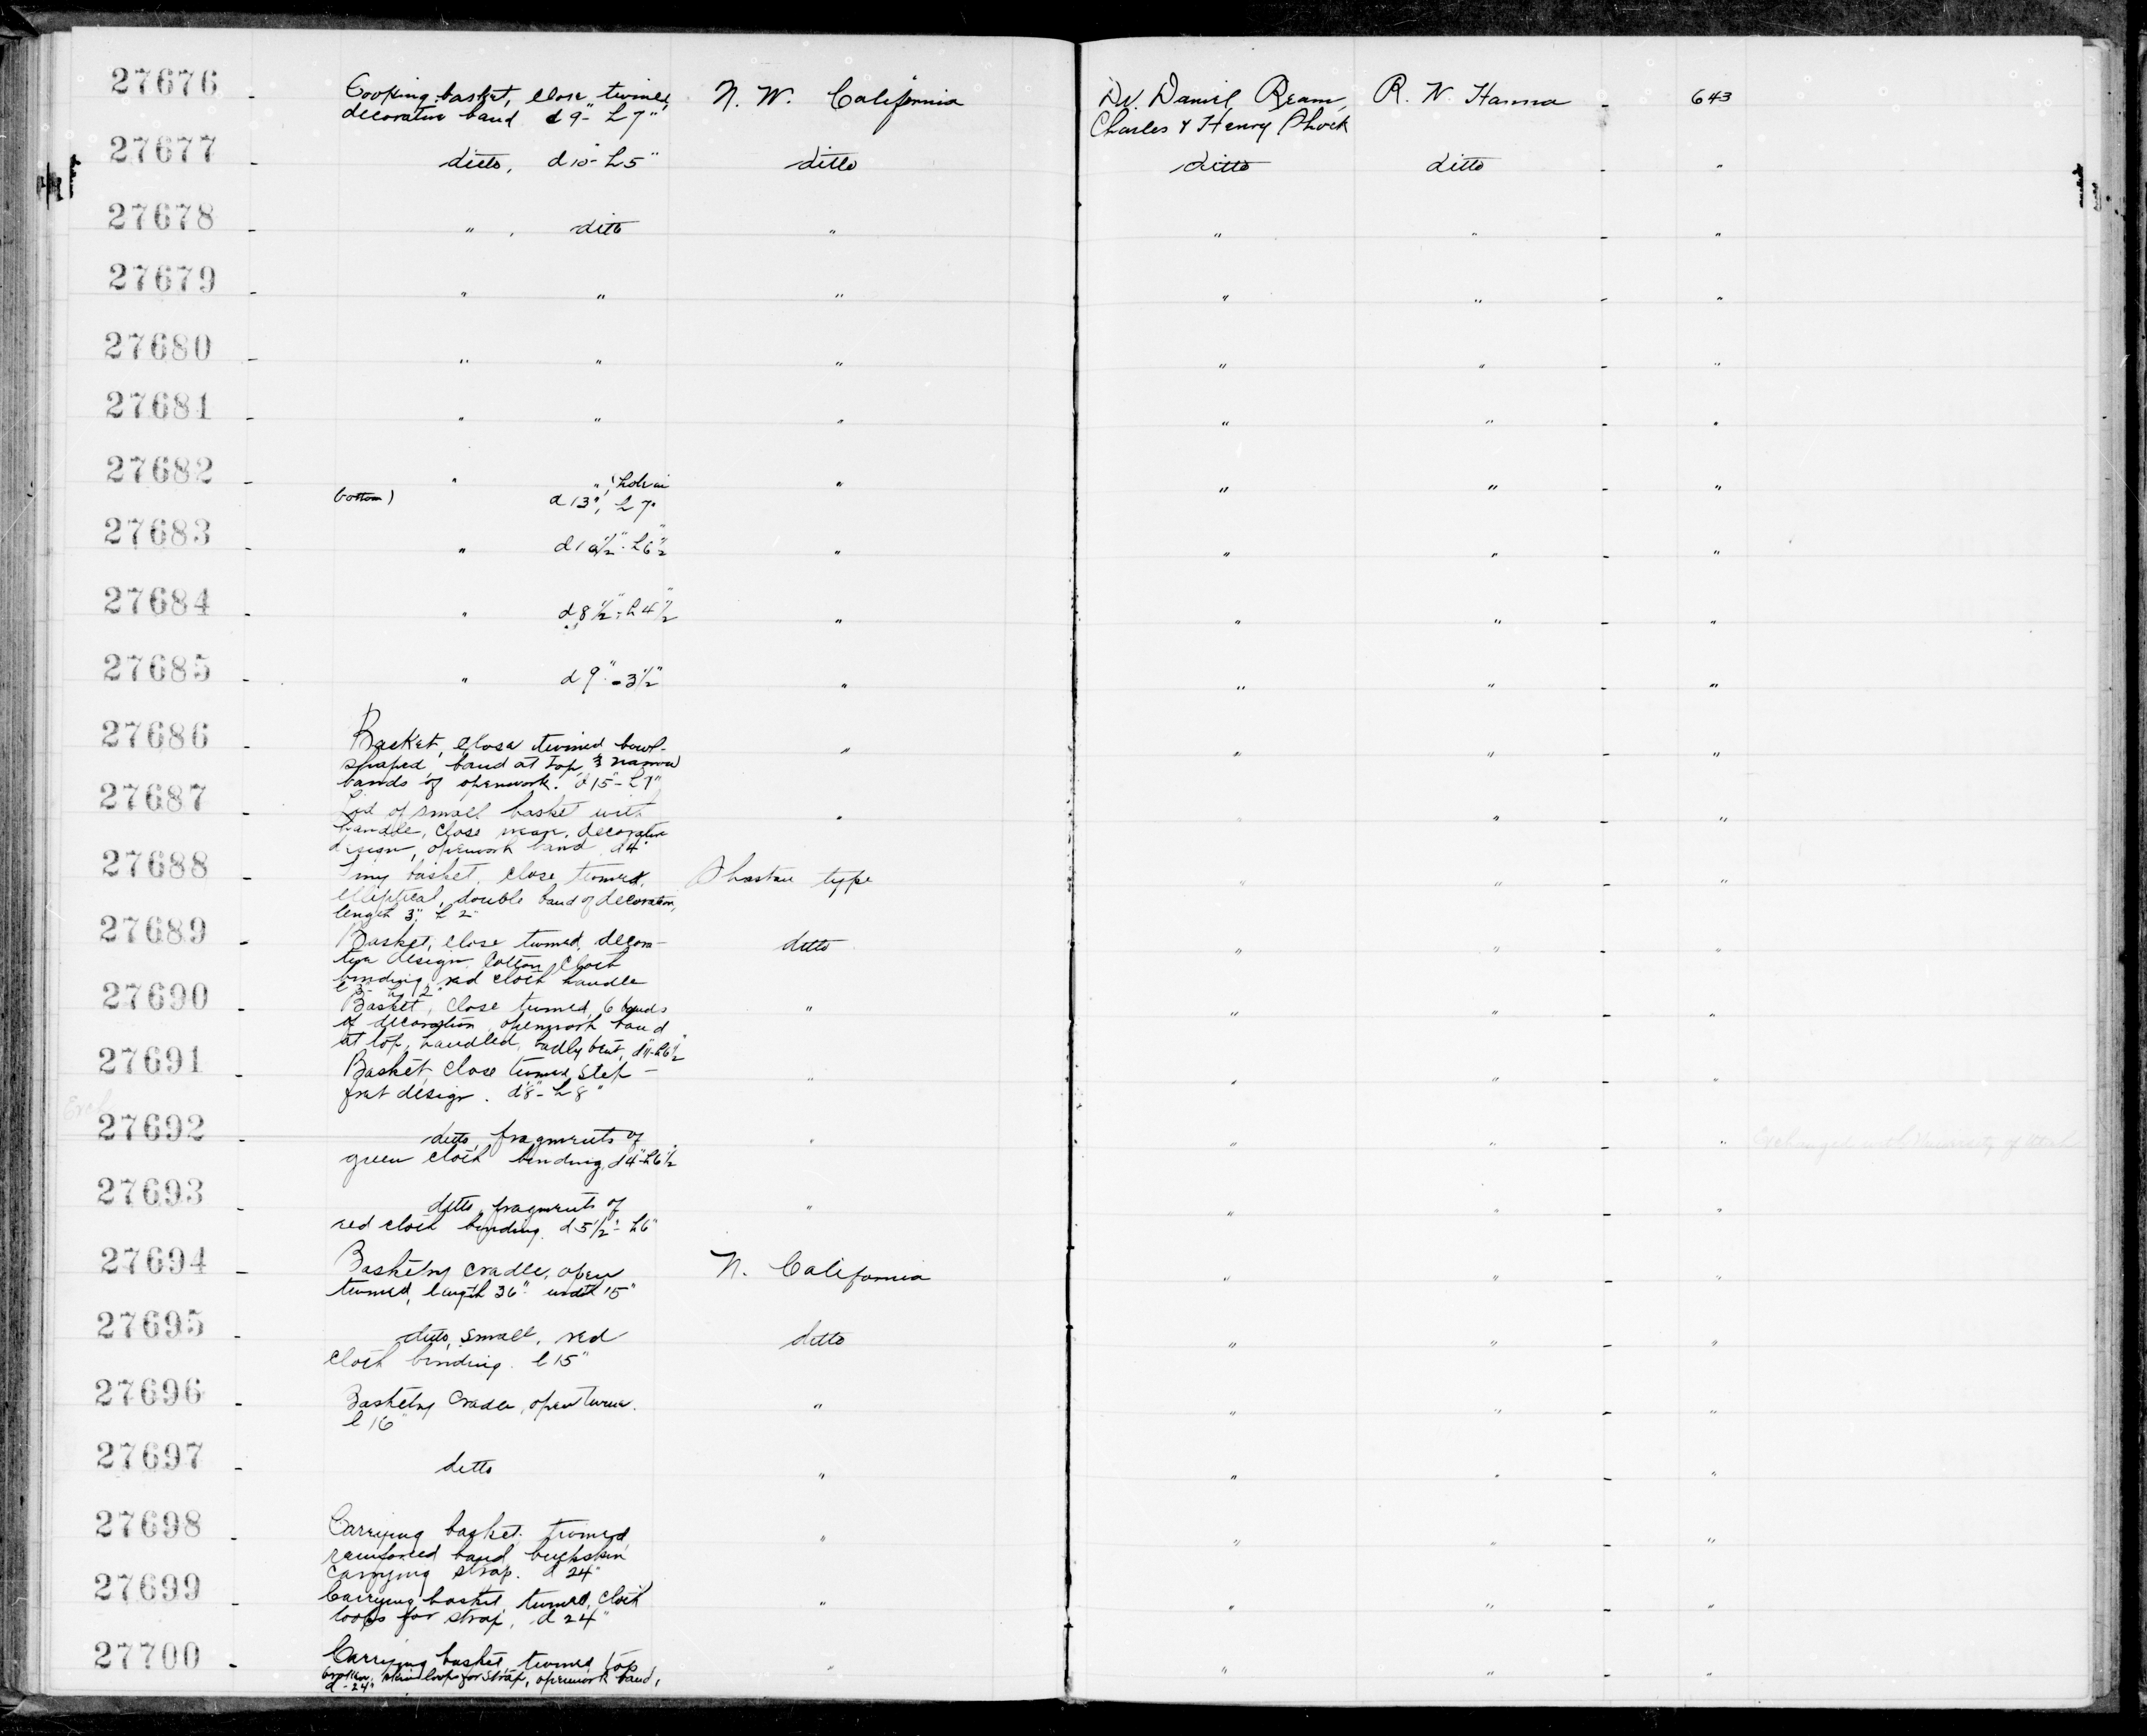 27676 - Cooking basket, close twined, N. W. California Dr. Daniel Ream, R. N. Hanna - 643
decorative band d 9" - h 7" Charles & Henry Shock
27677 - ditto, d 10" - h 5" ditto ditto ditto - "
27678 - " , ditto " " " - "
27679 - " " " " " - "
27680 - " " " " " - "
27681 - " " " " " - "
27682 - " ", (hole in " " " - "
bottom) d 13", h 7"
27683 - " d 10 1/2" - h 6 1/2" " " " - "
27684 - " d 8 1/2" - h 4 1/2" " " " - "
27685 - " d 9" - 3 1/2" " " " - "
27686 - Basket, close twined, bowl- " " " - "
shaped, band at top, 3 narrow
bands of openwork. d 15" - h 7"
27687 - Lid of small basket with " " " - "
handle, close weave, decorative
design, openwork band d 4"
27688 - Tiny basket, close twined, Shastan type " " - "
elliptical, double band of decoration,
length 3", h 2"
27689 - Basket, close twined, decora- ditto " " - "
tive design. Cotton cloth
binding, red cloth handle
27690 - Basket, close twined, 6 bands " " " - "
of decoration, openwork band
at top, handled, badly bent, d 11" - h 6 1/2"
27691 - Basket, close twined, step- " " " - "
fret design. d 8" - h 8"
Exch.
27692 - ditto, fragments of " " " - " Exchanged with University of Utah
green cloth binding, d 4" - h 6 1/2
27693 - ditto, fragments of " " " - "
red cloth binding. d 5 1/2" - h 6"
27694 - Basketry cradle, open N. California " " - "
twined, length 36" width 15"
27695 - ditto, small, red ditto " " - "
cloth binding. l 15"
27696 - Basketry cradle, open twine. " " " - "
l 16"
27697 - ditto " " " - "
27698 - Carrying basket, twined, " " " - "
reinforced band, buckskin
carrying strap. d 24"
27699 - Carrying basket, twined, cloth " " " - "
loops for strap, d 24"
27700 - Carrying basket, twined, top " " " - "
broken, loops for strap, openwork band,
d - 24"